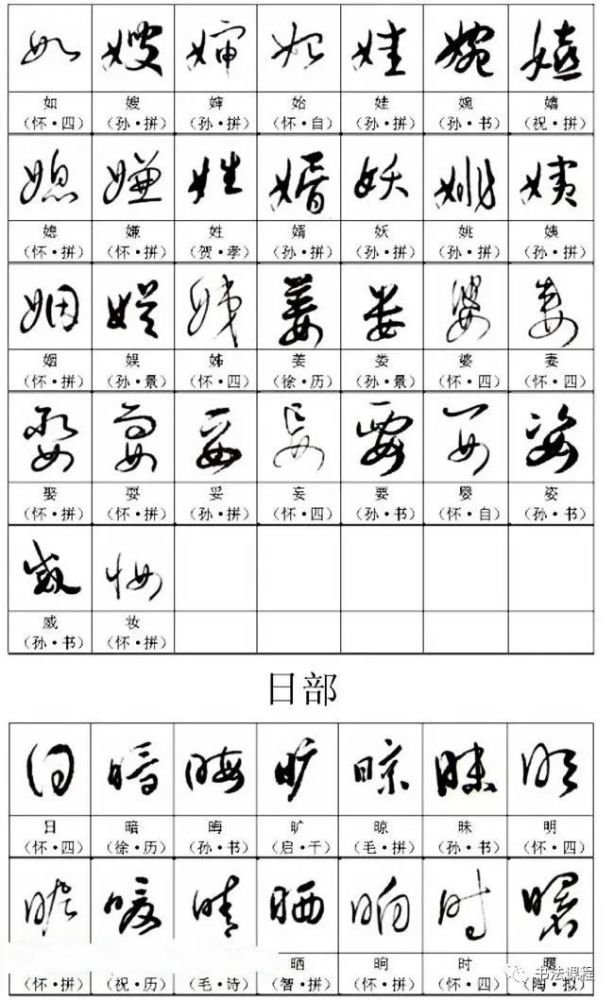 如 嫂 婶 始 娃 婉 嬉
(怀·四) (孙·拼) (孙·拼) (怀·自) (孙·拼) (孙·书) (祝·拼)
媳 嫌 姓 婿 妖 姚 姨
(怀·拼) (怀·拼) (贺·孝) (孙·拼) (孙·拼) (孙·拼) (孙·拼)
姻 娱 姊 姜 娄 婆 妻
(怀·拼) (孙·景) (怀·四) (徐·历) (孙·景) (怀·四) (怀·四)
娶 耍 妥 妄 要 婴 姿
(怀·拼) (怀·拼) (孙·拼) (怀·四) (孙·书) (怀·自) (孙·书)
威 妆
(孙·书) (怀·拼)
日部
日 暗 晦 旷 晾 昧 明
(怀·四) (徐·历) (孙·书) (启·千) (毛·拼) (孙·书) (怀·四)
晒 晌 时 曙
(怀·拼) (祝·历) (毛·诗) (智·拼) (怀·拼) (怀·四) (陶·拟)
书法课程